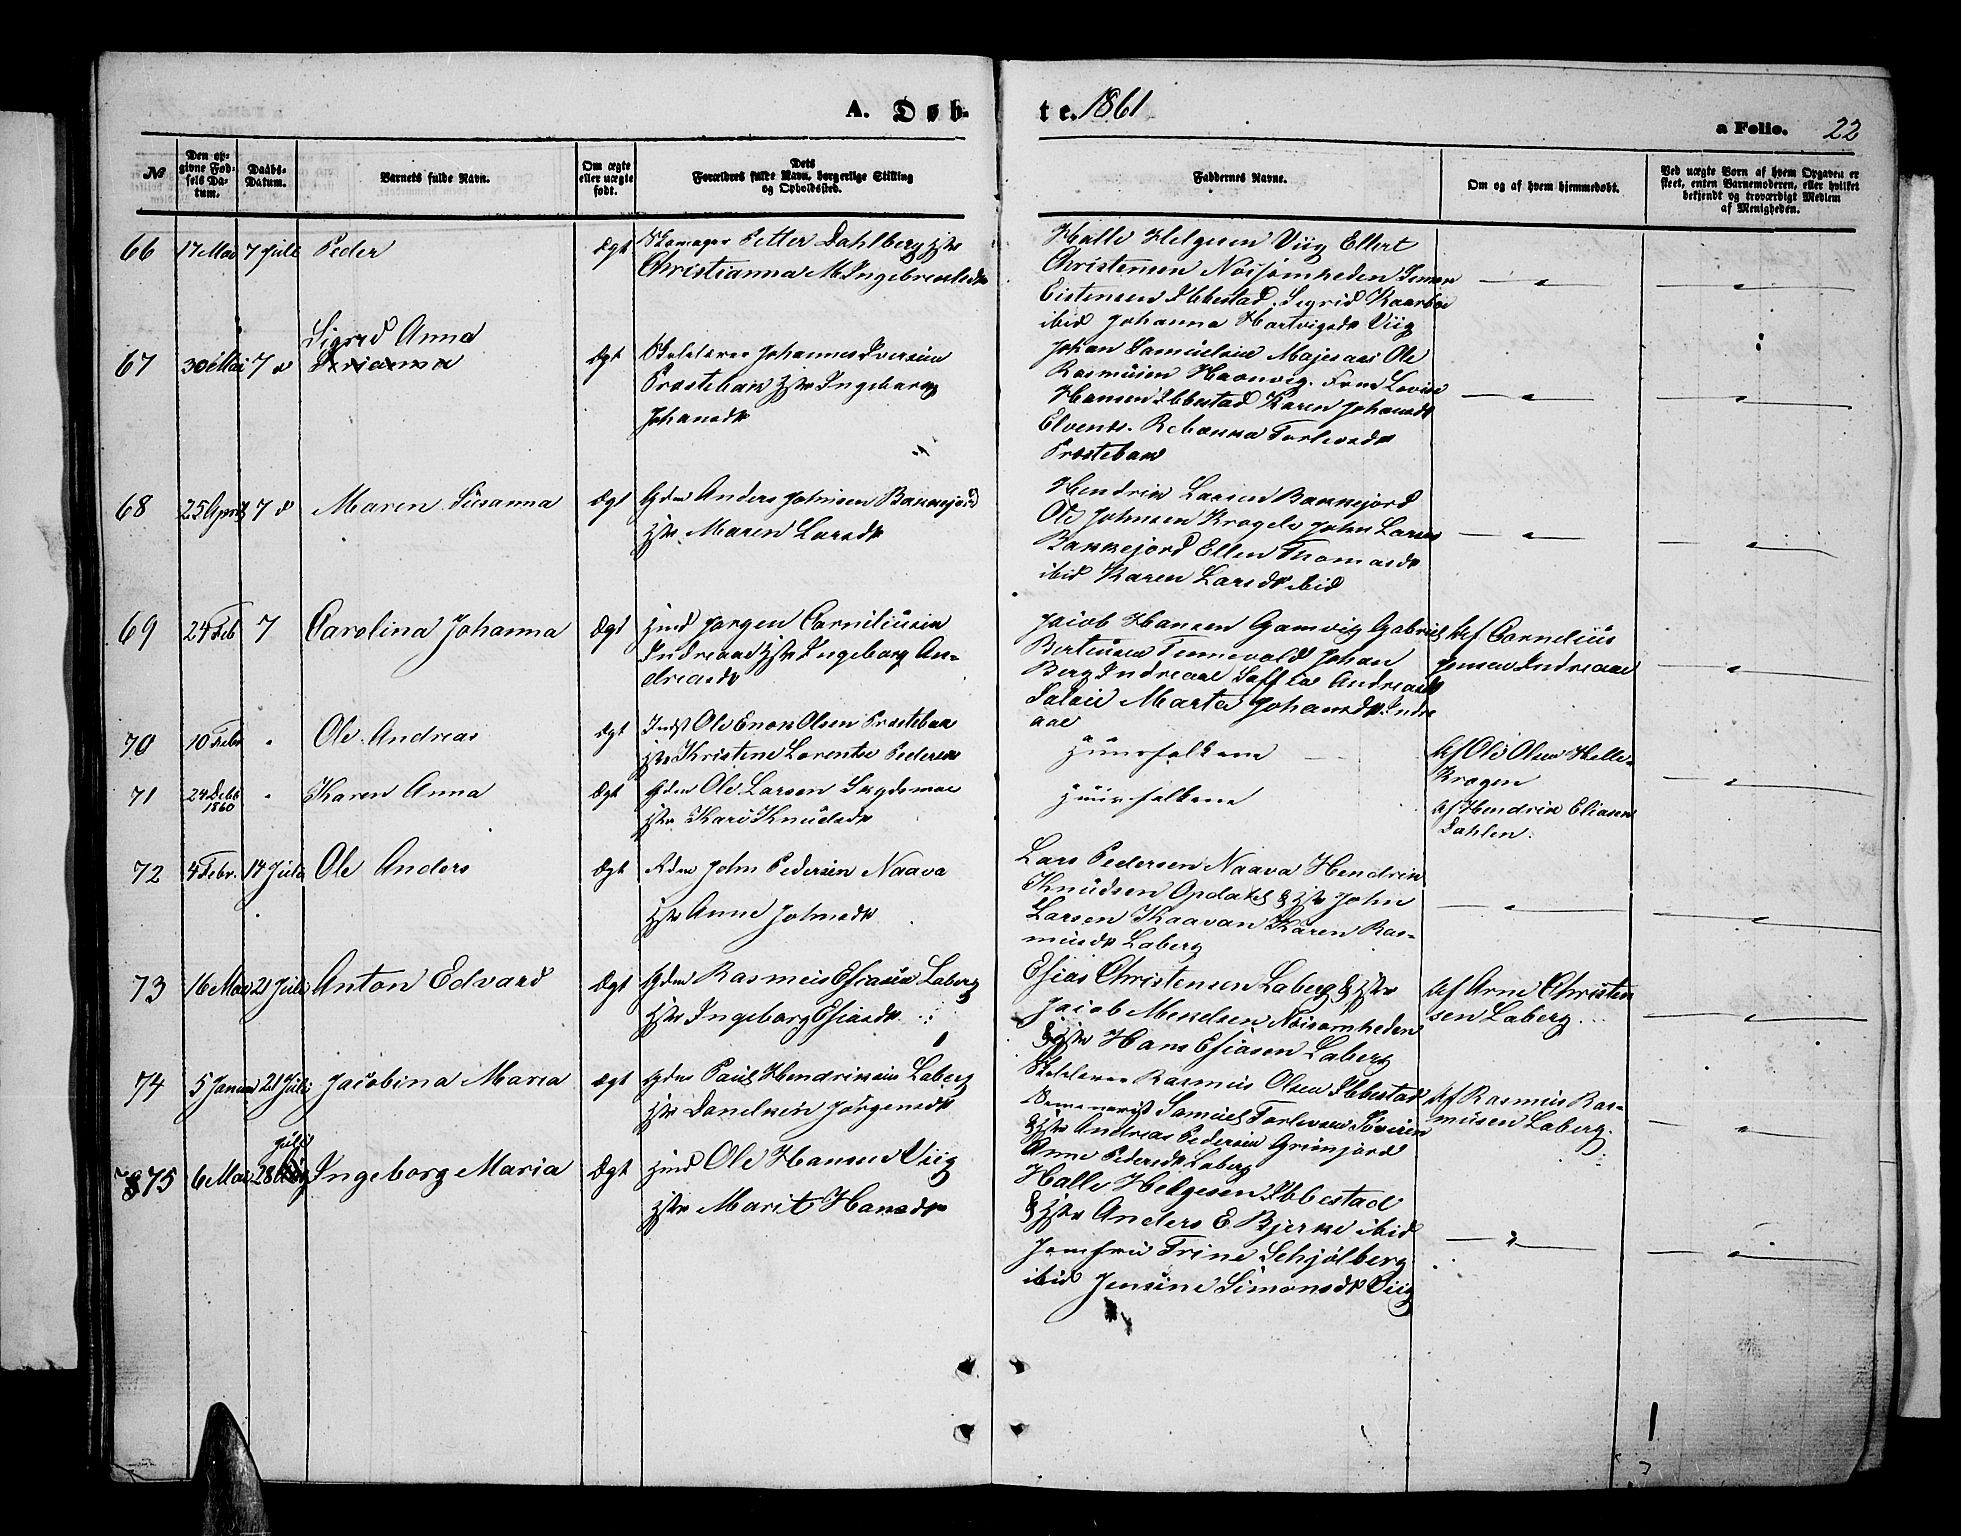 A. Døb-
te. 1861
a Folio. 22
№
Den op-
givne Fød-
sels Da-
tum.
Daabs-
Datum.
Barnets fulde Navn.
Om ægte
eller uægte
født.
Dets
Forældres fulde Navn, borgerlige Stilling
og Opholdssted.
Faddernes Navne.
Om og af hvem hjemmedøbt.
Ved uægte Børn af hvem Opgaven er
skeet, enten Barnemoderen, eller hvilket
bekjendt og troværdigt Medlem
af Menigheden.
66 17 Mai 7 Juli Peder Ægt Skomager Petter Dahlberg Hstr
Christianna M. Ingebregtsdr
Halle Helgesen Viig Ellert
Christensen Nøisomheden
Ibbestad, Sigrid Kaarbøe
ibid Johanna Hartvigsdr Viig
67 30 Mai 7 d Sigrid Anna
Ægt Skolelærer Johannes Iversen
Præstebak Hstr Ingeborg
Johansdr
Johan Samuelsen Majesaas Ole
Rasmusen Havnvig. Frue Lovise
Hansen Ibbestad Karen Johansdr
Elvenes. Rebekka Torlevsdr
Præstebak
68 25 April 7 d Maren Susanna Ægt Gdm Anders Johnsen Bakkejord
Hstr Maren Larsdr
Hendrik Larsen Bakkejord
Ole Johnsen Kragele John Larsen
Bakkejord Ellen Thomasdr
ibid Karen Larsdr ibid
69 24 Feb 7 Carolina Johanna Ægt Hmd Jørgen Corneliusen
Indreaae Hstr Ingeborg An-
dreasdr
Jacob Hansen Gamvig Gabriel
Berteusen Tennevold Johan
Berg Indreaae Saffia Andreasdr
Marta Johansdr Indre
aae
Af Cornelius
Jensen Indreaae
70 10 Febr " Ole Andreas Ægt Indst Ole Enok Olsen Præstebak
Hstr Kristine Lorentse Pedersdr
Huusfolkene
Af Ole Olsen Helle-
Krogen
71 24 Debr 1860 " Karen Anna Ægt Gdm Ole Larsen
Hstr Kari Knudsdr
Huusfolkene
Af Hendrik Eliasen
Dahlen.
72 4 Febr. 14 Juli Ole Anders Ægt Rdm John Pedersen Naava
Hstr Anne Johnsdr
Lars Pedersen Naava Hendrik
Knudsen Opdahl & Hstr John
Larsen Kaavan Karen Ras-
musdr Laberg
73 16 Mai 21 Juli Anton Edvard Ægt Gdm Rasmus Esiasen Laberg
Hstr Ingeborg Esiasdr
Esias Christensen Laberg & Hstr
Jacob Mekelsen Nøisomheden
& Hstr Hans Esiasen Laberg
Af Arne Christen
sen Laberg
74 5 Januar 21 Juli Jacobina Maria Ægt Gdm Paul Hendriksen Laberg
Hstr Danelken Jørgensdr
Skolelærer Rasmus Olsen Ibbestad
Seminarist Samuel Torlevsen
& Hstr Andreas Pedersen Grimjord
Anne Pedersdr Laberg
Af Rasmus Ras-
musen Laberg.
75 6 Mai 28 Juli Ingeborg Maria Ægt Hmd Ole Hansen Viig
Hstr Marit Hansdr
Halle Helgesen Ibbestad
& Hstr Anders E. Bjerke ibid
Jomfru Trine Schjølberg
ibid Jensine Simonsdr Viig